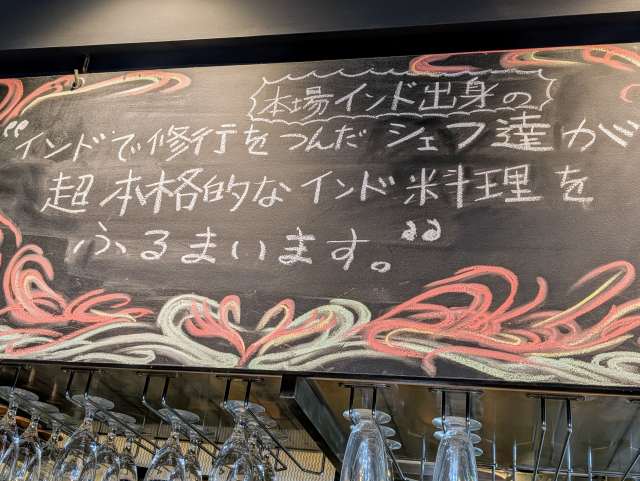 本場インド出身の
“インドで修行をつんだシェフ達が
超本格的なインド料理を
ふるまいます。”